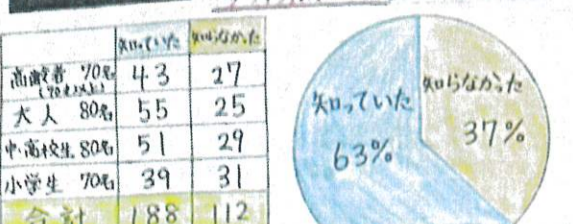 知っていた 知らなかった
高齢者 70名 43 27
大人 80名 55 25
中・高校生 80名 51 29
小学生 70名 39 31
合計 188 112
知っていた
63%
知らなかった
37%